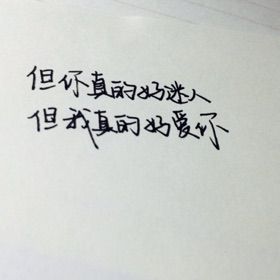 但你真的好迷人
但我真的好爱你